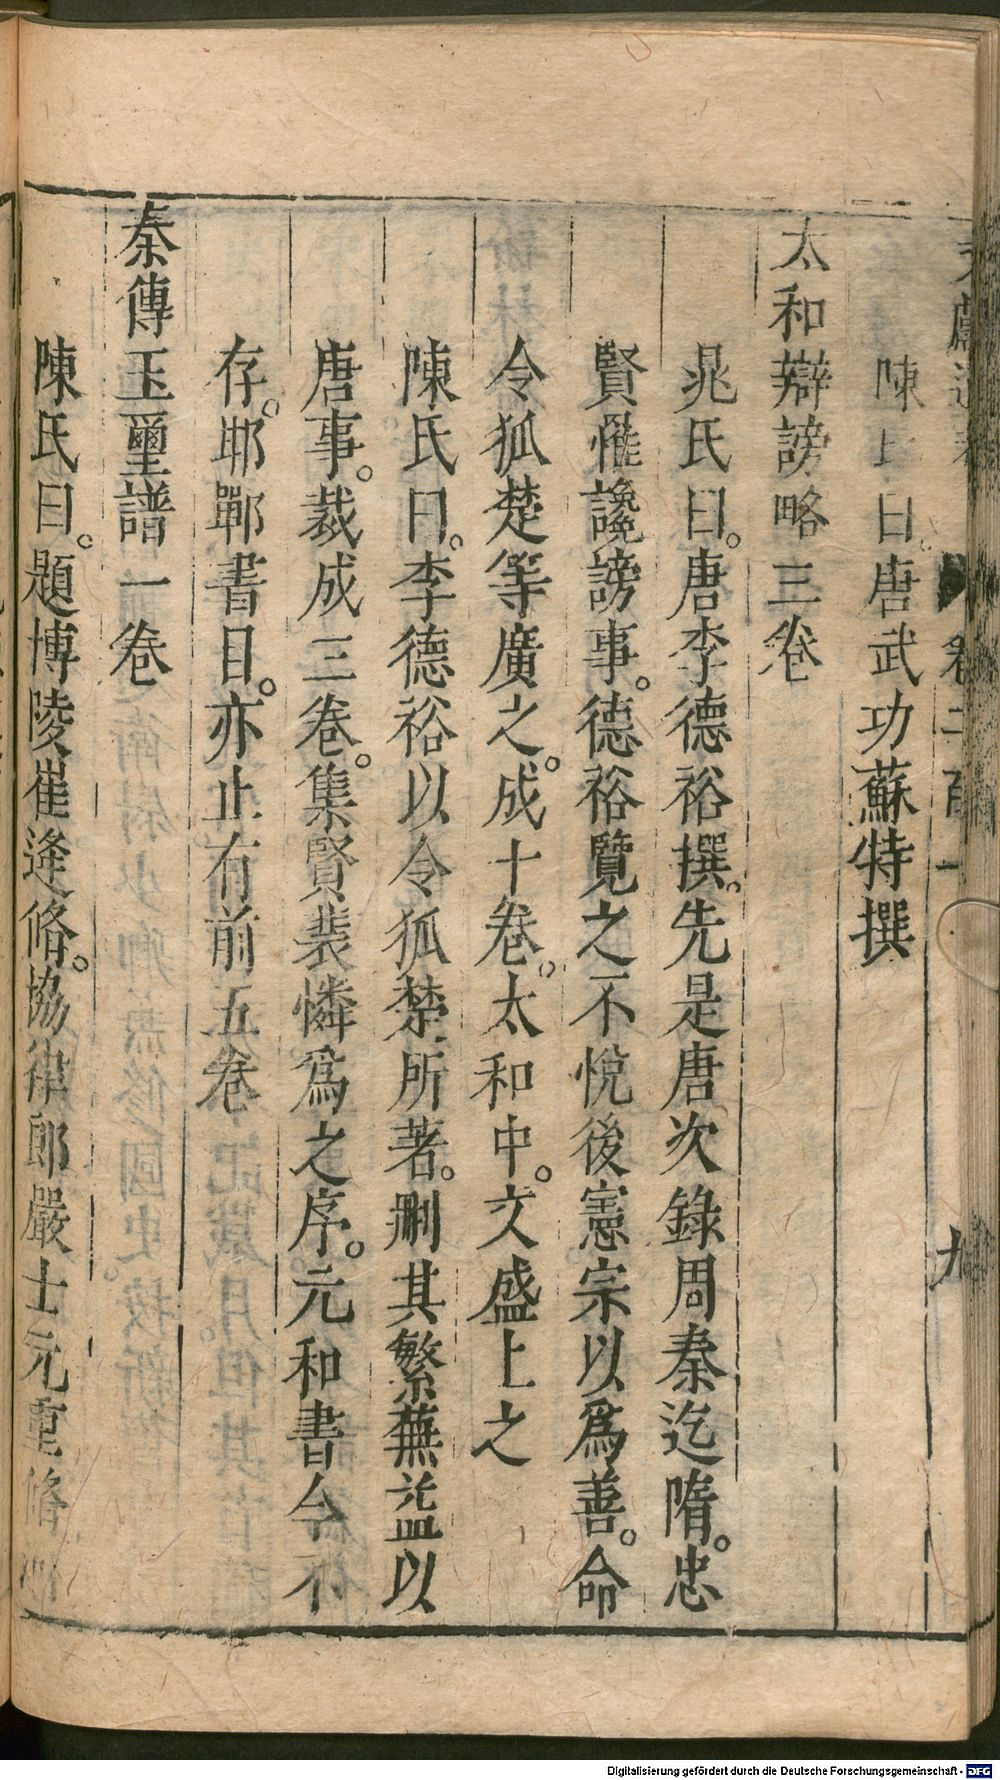 文獻通考 卷二百一 九
陳氏曰。唐武功蘇特撰
太和辯謗略三卷
晁氏曰。唐李德裕撰。先是唐次錄周秦迄隋。忠
賢罹讒謗事。德裕覽之不悅後憲宗以爲善。命
令狐楚等廣之。成十卷。太和中。文盛上之
陳氏曰。李德裕以令狐楚所著。刪其繁蕪益以
唐事。裁成三卷。集賢裴憐爲之序。元和書今不
存。邯鄲書目。亦止有前五卷
秦傳玉璽譜一卷
陳氏曰。題博陵崔逢脩。協律郎嚴士元重脩
Digitalisierung gefördert durch die Deutsche Forschungsgemeinschaft - DFG